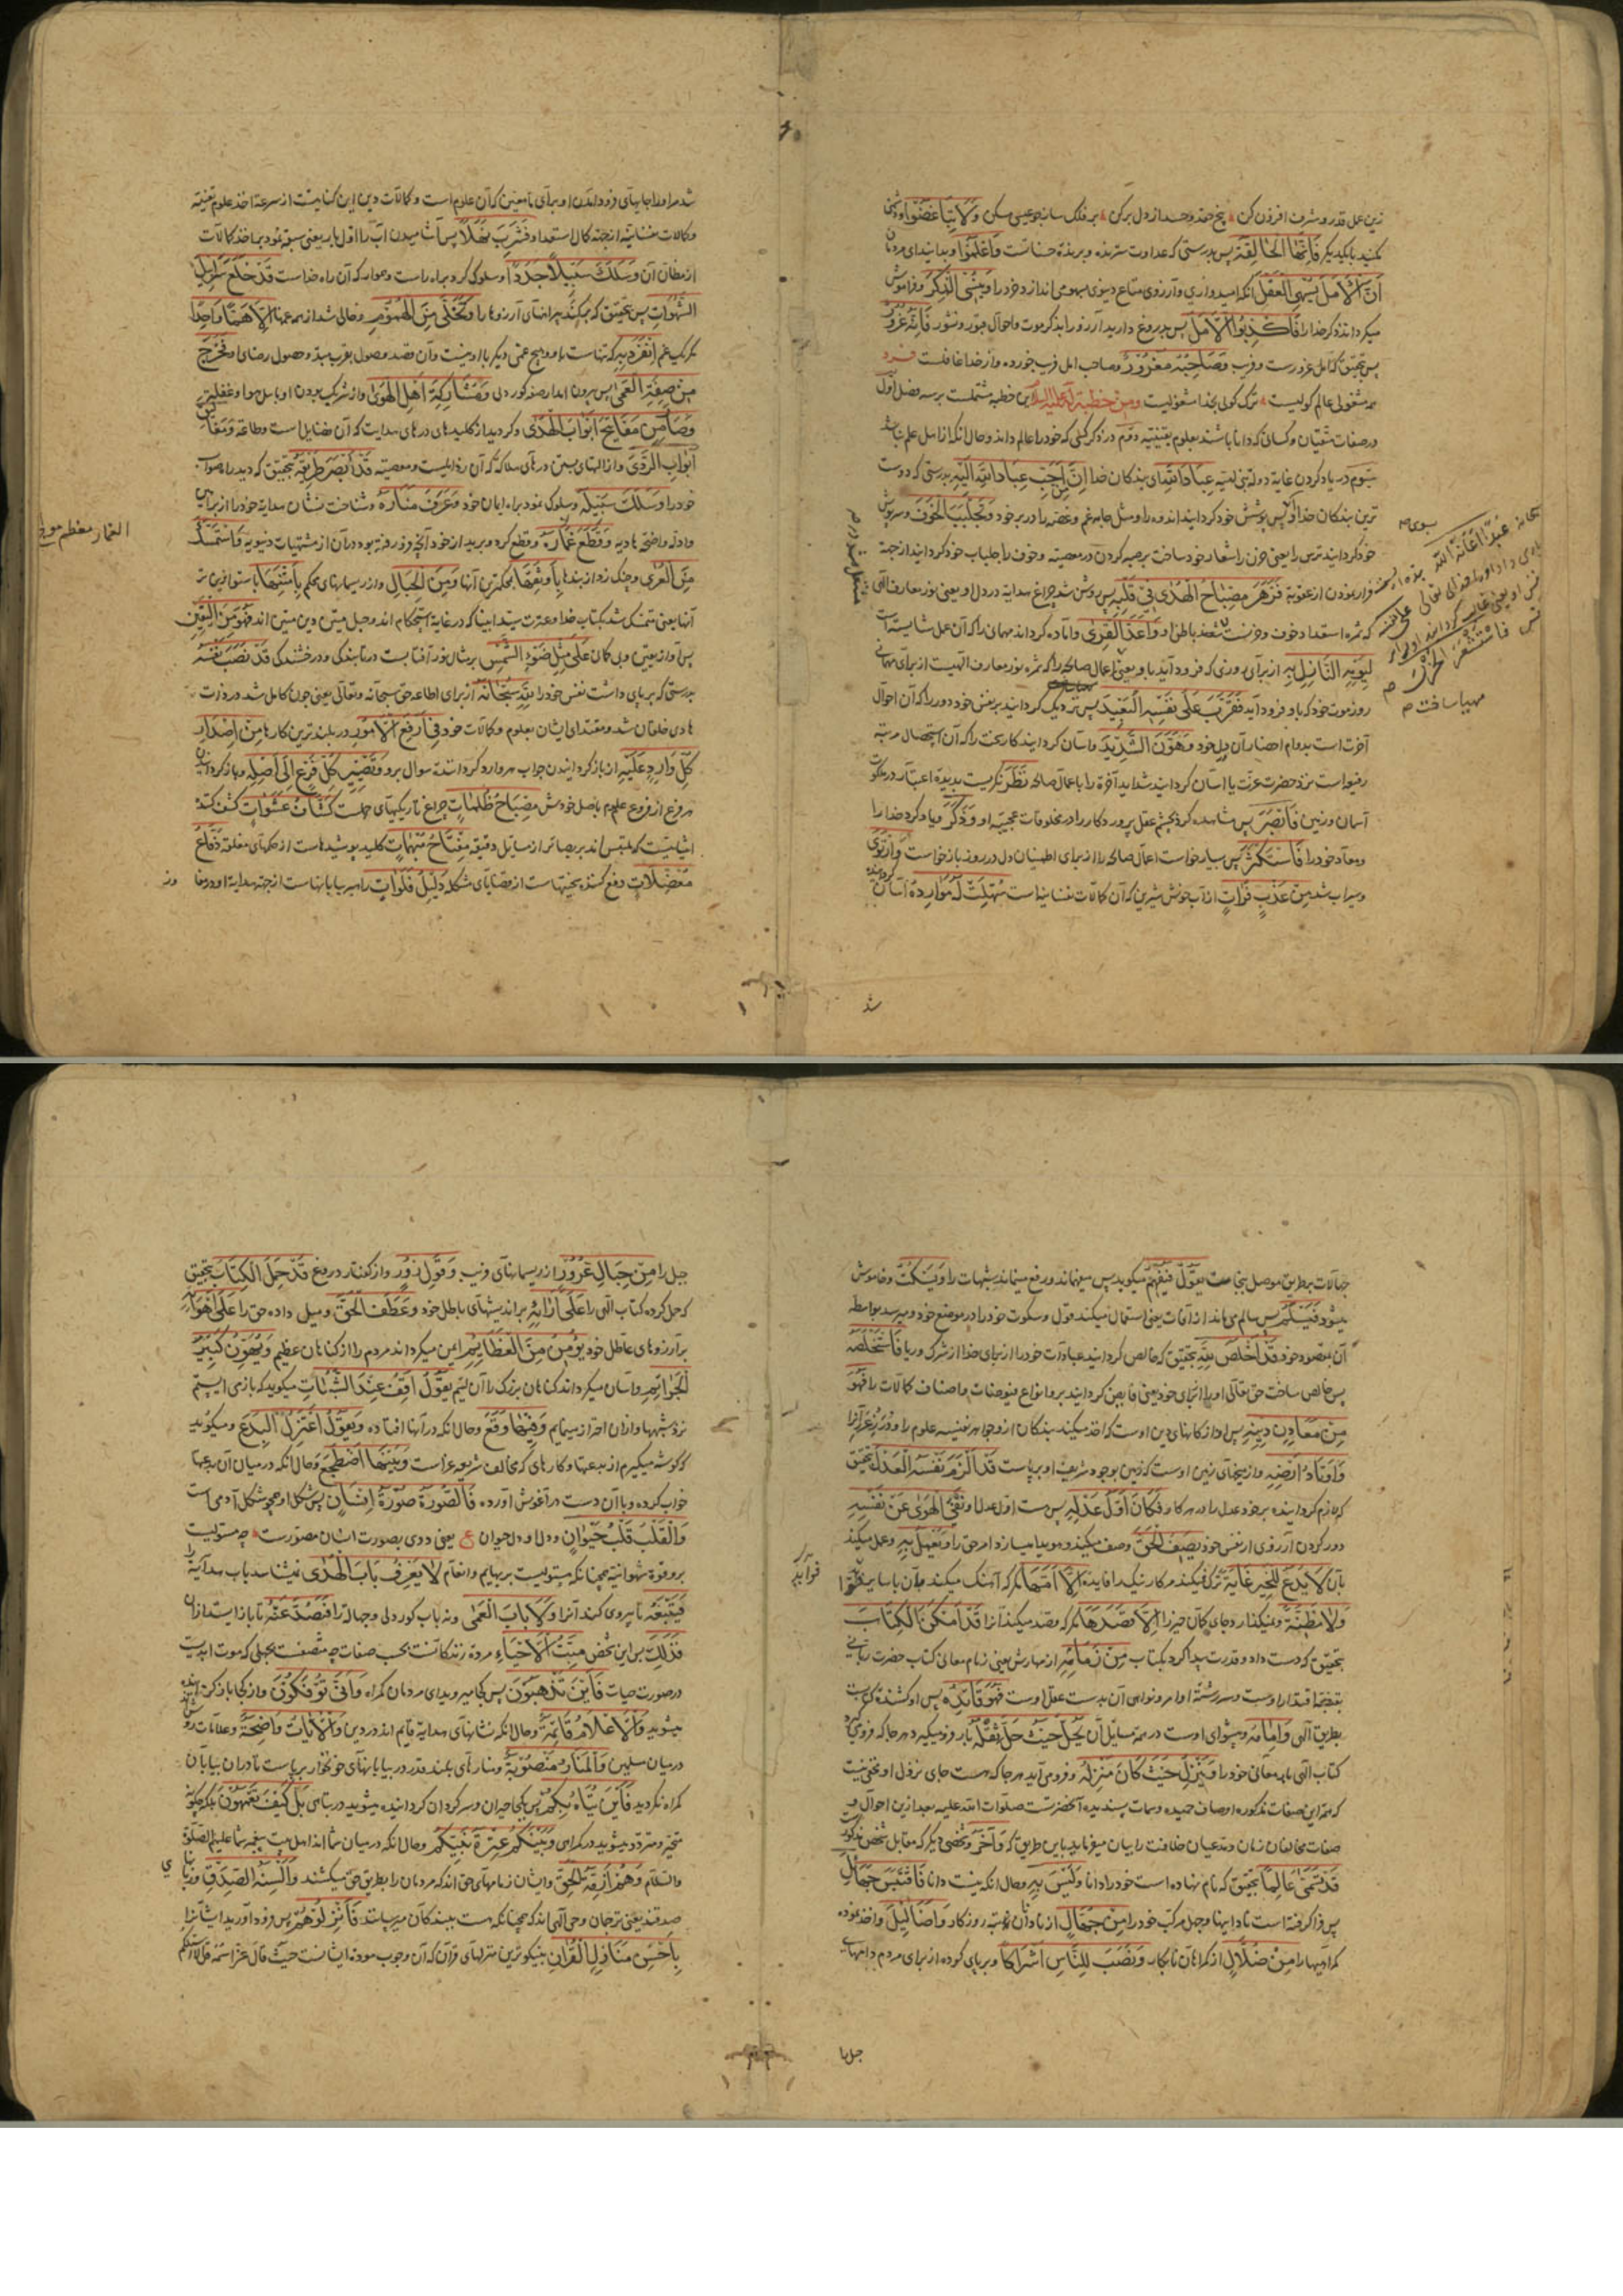 زین عمل قدر و شرف افزون کن بیخ حقد و حسد از دل برکن بر فلک ساز چو عیسی مسکن وَلَا تَبَاغَضُوا و دشمنی
مکنید با یکدیگر فَاِنَّهَا الْحَالِقَةُ پس بدرستی که عداوت سترنده و برنده حسنات است وَاعْلَمُوا و بدانید ای مردمان
اَنَّ الْاَمَلَ یُسْهِی الْعَقْلَ آنکه امیدواری و آرزوی متاع دنیوی بسهو می اندازد خرد را وَیُنْسِی الذِّکْرَ و فراموش
میگرداند ذکر خدا را فَاَکْذِبُوا الْاَمَلَ پس دروغ دارید آرزو را بذکر موت و احوال قبور و نشور فَاِنَّهُ غُرُورٌ
پس بتحقیق که امل غرورست و فریب وَصَاحِبُهُ مَغْرُورٌ و صاحب امل فریب خورده و از خدا غافلست فرد
همه مشغولی عالم کولیست ترک کولی بخدا مشغولیست ومن خطبة له علیه السلام این خطبه مشتملست بر سه فصل اول
در صفات متقیان و کسانی که دانا باشند بعلوم یقینیه دوم در ذکر کسی که خود را عالم داند و حال آنکه از اهل علم نباشد
سیوم در یاد کردن عترت عِبَادَ اللّهِ ای بندگان خدا اِنَّ مِنْ اَحَبِّ عِبَادِ اللّهِ اِلَیْهِ بدرستی که دوست
ترین بندگان خدا پس پوشش خود گردانید اندوه را و مثل جامه غم و غصه را در بر خود وَتَجَلْبَبَ الْخَوْفَ و سرپوش
خود گردانید ترس را یعنی حزن را شعار خود ساخت بر جهه کردن در معصیت و خوف را جلباب خود گردانید از جهة
فرار نمودن از عقوبة فَزَهَرَ مِصْبَاحُ الْهُدَی فِی قَلْبِهِ پس روشن شد چراغ هدایة در دل او یعنی نور معارف الهی
که ثمره استعداد خوف و حزنست وَاَعَدَّ الْقِرَی و آماده کرد اند مهمانی را که آن عمل شایسته است
لِیَوْمِهِ النَّازِلِ بِهِ از برای روزی که فرود آید باو یعنی اعمال صالحه را که ثمره نور معارف الهیست از برای مهمانی
روز موت خود که باو فرود آید فَقَرَّبَ عَلَی نَفْسِهِ الْبَعِیدَ پس نزدیک گردانید بر نفس خود دور را که آن احوال
آخرت است بدوام احضار آن در دل خود وَهَوَّنَ الشَّدِیدَ و آسان گردانید کار سخت را که آن استحصال مرتبه
رفیع است نزد حضرت عزت یا آسان گردانید شداید آخرة را باعمال صالحه نَظَرَ نگریست بدیده اعتبار در ملکوت
آسمان و زمین فَاَبْصَرَ پس مشاهده کرد بچشم عقل پروردگار را در مخلوقات عجیبه او وَذَکَرَ و یاد کرد خدا را
و معاد خود را فَاسْتَکْثَرَ پس بسیار خواست اعمال صالحه را از برای اطمینان دل در روز بازخواست وَارْتَوَی
و سیراب شد مِنْ عَذْبٍ فُرَاتٍ از آب خوش شیرین که آن کمالات نفسانیه است سُهِّلَتْ لَهُ مَوَارِدُهُ آسان
شد
سبحانه عَبْدًا اَعَانَهُ اللّهُ
فَاسْتَشْعَرَ الْحُزْنَ
مهیا ساخت
شد مر او را جایهای فرود آمدن او برای تأمین که آن علوم است و کمالات دین این کنایتست از سرعة اخذ علوم یقینیه
و کمالات نفسانیه از جهة کمال استعداد فَشَرِبَ نَهَلًا پس آشامیدن آب را اول بار یعنی سبقت نمود بر اخذ کمالات
از مظان آن وَسَلَکَ سَبِیلًا جَدَدًا و سلوک کرد براه راست و هموار که آن راه خداست قَدْ خَلَعَ سَرَابِیلَ
الشَّهَوَاتِ پس بتحقیق که برکند پیراهنهای آرزوها را وَتَخَلَّی مِنَ الْهُمُومِ و خالی شد از همه غمها اِلَّا هَمًّا وَاحِدًا
مگر یک غم اِنْفَرَدَ بِهِ که تنهاست باو و هیچ غمی دیگر با او نیست و آن قصد وصول بقرب مبدأ و حصول رضای او فَخَرَجَ
مِنْ صِفَةِ الْعَمَی پس بیرون آمد از صفة کوری دل وَمُشَارَکَةِ اَهْلِ الْهَوَی و از شریک بودن او باهل هوا و غفلت
وَصَارَ مِنْ مَفَاتِیحِ اَبْوَابِ الْهُدَی و گردید از کلیدهای درهای هدایت که آن فضایل است و طاعة وَمَغَالِیقِ
اَبْوَابِ الرَّدَی و از آلتهای بستن درهای هلاکه که آن رذایلست و معصیة قَدْ اَبْصَرَ طَرِیقَهُ بتحقیق که دید راه صواب
خود را وَسَلَکَ سَبِیلَهُ و سلوک نمود براه ایمان خود وَعَرَفَ مَنَارَهُ و شناخت نشان هدایة خود را از براهین
و ادله واضحه هادیه وَقَطَعَ غِمَارَهُ و قطع کرد و برید از خود آنچه فرو رفته بود در آن از مشتهیات دنیویه وَاسْتَمْسَکَ
مِنَ الْعُرَی و چنگ زد از بندها بِاَوْثَقِهَا بمحکمترین آنها وَمِنَ الْحِبَالِ و از ریسمانهای محکم بِاَمْتَنِهَا باستوارترین
آنها یعنی متمسک شد بکتاب خدا و عترت سید انبیا که در غایة استحکام اند و حبل متین دین مبین اند فَهُوَ مِنَ الْیَقِینِ
پس او از یقین و بی گمان عَلَی مِثْلِ ضَوْءِ الشَّمْسِ بر مثال نور آفتابست در تابندگی و درخشندگی قَدْ نَصَبَ نَفْسَهُ
بدرستی که برپای داشت نفس خود را لِلّهِ سُبْحَانَهُ از برای اطاعه حق سبحانه و تعالی یعنی چون کامل شد در ذات
هادی خلقان شد و مقتدای ایشان بعلوم و کمالات خود فِی اَرْفَعِ الْاُمُورِ در بلندترین کارها مِنْ اِصْدَارِ
کُلِّ وَارِدٍ عَلَیْهِ از بازگردانیدن جواب هر وارد کرداننده سوال برو وَتَصْیِیرِ کُلِّ فَرْعٍ اِلَی اَصْلِهِ و بازگردانیدن
هر فرع از فروع علوم باصل خودش مِصْبَاحُ ظُلُمَاتٍ چراغ تاریکیهای جهلست کَشَّافُ عَشَوَاتٍ کشف کننده
اشیائیست که ملتبس اند بر بصائر از مسایل دقیقه مِفْتَاحُ مُبْهَمَاتٍ کلید پوشیدهاست از حکمهای مغلقه دَفَّاعُ
مُعْضِلَاتٍ دفع کننده سختیهاست از قضایای مشکله دَلِیلُ فَلَوَاتٍ راهبر بیابانهاست از جهة هدایة او درمفا
وز
الغمار معظم موج
جهالات بطریق موصل بنجاتست یَقُولُ فَیُفْهِمُ میگوید پس میفهماند و رفع مینماید شبهات را وَیَسْکُتُ و خاموش
میشود فَیَسْلَمُ پس سالم می ماند از آفات یعنی استعمال میکند قول و سکوت خود را در موضع خود و میرسد بواسطه
آن بمقصود خود قَدْ اَخْلَصَ لِلّهِ بتحقیق که خالص گردانید عبادات خود را از برای خدا از شرک و ریا فَاسْتَخْلَصَهُ
پس خالص ساخت حق تعالی او را از برای خود یعنی فایض گردانید برو انواع فیوضات و اصناف کمالات را فَهُوَ
مِنْ مَعَادِنِ دِینِهِ پس او از کانهای دین اوست که اخذ میکنند بندگان ازو جواهر نفیسه علوم را
وَاَوْتَادِ اَرْضِهِ و از میخهای زمین اوست که زمین بوجود شریف او برپاست قَدْ اَلْزَمَ نَفْسَهُ الْعَدْلَ بتحقیق
که لازم گردانیده بر خود عدل را در هر کار فَکَانَ اَوَّلَ عَدْلِهِ پس هست اول عدل او نَفْیُ الْهَوَی عَنْ نَفْسِهِ
دور کردن آرزوی از نفس خود یَصِفُ الْحَقَّ وصف میکند و هویدا میسازد امر حق را وَیَعْمَلُ بِهِ و عمل میکند
بآن لَا یَدَعُ لِلْخَیْرِ غَایَةً ترک نمیکند مر کار نیک را فایده اِلَّا اَمَّهَا مگر که آهنگ میکند بآن
وَلَا مَظِنَّةً و نمیگذارد جای گمان خیر را اِلَّا قَصَدَهَا مگر که قصد میکند آنرا قَدْ اَمْکَنَ الْکِتَابَ
بتحقیق که دست داد و قدرت پیدا کرد بکتاب مِنْ زِمَامِهِ از مهارش یعنی زمام معانی کتاب حضرت ربانی
بقبضه اقتدار اوست و سررشته اوامر و نواهی آن بدست عقل اوست فَهُوَ قَائِدُهُ پس او کشنده کتابست
بطریق الهی وَاِمَامُهُ و پیشوای اوست در همه مسایل آن یَحُلُّ حَیْثُ حَلَّ ثَقَلُهُ بار فرو میگیرد هر جا که فرو می گیرد
کتاب الهی بار معانی خود را وَیَنْزِلُ حَیْثُ کَانَ مَنْزِلُهُ و فرو می آید هر جا که هست جای نزول او و مخفی نیست
که همه این صفات مذکوره اوصاف حمیده و سمات پسندیده آنحضرتست صلوات الله علیه بعد ازین احوال و
صفات مخالفان زمان و مدعیان خلافت را بیان میفرماید باین طریق که وَآخَرُ و شخصی دیگر که مقابل شخص مذکور
قَدْ تَسَمَّی عَالِمًا بتحقیق که نام نهاده است خود را دانا وَلَیْسَ بِهِ و حال آنکه نیست دانا فَاقْتَبَسَ جَهَائِلَ
پس فرا گرفته است نادانیها و جهل مرکب خود را مِنْ جُهَّالٍ از نادانان روزگار وَاَضَالِیلَ و اخذ نموده
گمراهیها را مِنْ ضُلَّالٍ از گمراهان نابکار وَنَصَبَ لِلنَّاسِ اَشْرَاکًا و برپای کرده از برای مردم دامهای
حبل را مِنْ حِبَالِ غُرُورٍ از ریسمانهای فریب وَقَوْلِ زُورٍ و از گفتار دروغ قَدْ حَمَلَ الْکِتَابَ بتحقیق
که حمل کرده کتاب الهی را عَلَی آرَائِهِ بر اندیشهای باطل خود وَعَطَفَ الْحَقَّ و میل داده حق را عَلَی اَهْوَائِهِ
بر آرزوهای عاطل خود یُؤْمِنُ مِنَ الْعَظَائِمِ ایمن میگرداند مردم را از گناهان عظیم وَیُهَوِّنُ کَبِیرَ
الْجَرَائِمِ و آسان میگرداند گناهان بزرگ را آن لئیم یَقُولُ اَقِفُ عِنْدَ الشُّبُهَاتِ میگوید که بازمی ایستم
نزد شبهها و از آن احتراز مینمایم وَفِیهَا وَقَعَ و حال آنکه در آنها افتاده وَیَقُولُ اَعْتَزِلُ الْبِدَعَ و میگوید
که گوشه میگیرم از بدعتها و کارهای که مخالف شریعة غراست وَبَیْنَهَا اضْطَجَعَ و حال آنکه در میان آن بدعتها
خواب کرده و با آن دست در آغوش آورده فَالصُّورَةُ صُورَةُ اِنْسَانٍ پس شکل او همچو شکل آدمی است
وَالْقَلْبُ قَلْبُ حَیَوَانٍ و دل او دل حیوان ع یعنی ددی بصورت انسان مصورست چه مستولیست
برو قوة شهوانیه همچنانکه مستولیست بر بهایم و انعام لَا یَعْرِفُ بَابَ الْهُدَی نمیشناسد باب هدایة را
فَیَتَّبِعَهُ تا پیروی کند آنرا وَلَا بَابَ الْعَمَی و نه باب کوردلی و جهالة را فَیَصُدَّ عَنْهُ تا بازایستد از آن
فَذَلِکَ پس این شخص مَیِّتُ الْاَحْیَاءِ مرده زندگانست بحسب صفات چه متصفست بجهلی که موت ابدیست
در صورت حیات فَاَیْنَ تَذْهَبُونَ پس کجا میروید ای مردمان گمراه وَاَنَّی تُؤْفَکُونَ و از کجا بازگردانیده
میشوید وَالْاَعْلَامُ قَائِمَةٌ و حال آنکه نشانهای هدایة قایم اند در دین وَالْآیَاتُ وَاضِحَةٌ و علامات روشن
در میان مسلمین وَالْمَنَارُ مَنْصُوبَةٌ و منارهای بلند قدر در بیابانهای خونخوار برپاست تا در آن بیابان
گمراه نگردید فَاَیْنَ یُتَاهُ بِکُمْ پس کجا حیران و سرگردان گردانیده میشوید در تباهی بَلْ کَیْفَ تَعْمَهُونَ بلکه چگونه
متحیر و متردد میشوید در گمراهی وَبَیْنَکُمْ عِتْرَةُ نَبِیِّکُمْ و حال آنکه در میان شما اند اهل بیت پیغمبر شما علیهم الصلوة
والسلام وَهُمْ اَزِمَّةُ الْحَقِّ و ایشان زمامهای حق اند که مردمان را بطریق حق میکشند وَاَلْسِنَةُ الصِّدْقِ و زبانهای
صدقند یعنی ترجمان وحی الهی اند که چنانکه هست ببندگان میرسانند فَاَنْزِلُوهُمْ پس فرود آورید ایشانرا
بِاَحْسَنِ مَنَازِلِ الْقُرْآنِ بنیکوترین منزلهای قرآن که آن وجوب مودة ایشانست حیث قال عز اسمه قل لا اسئلکم